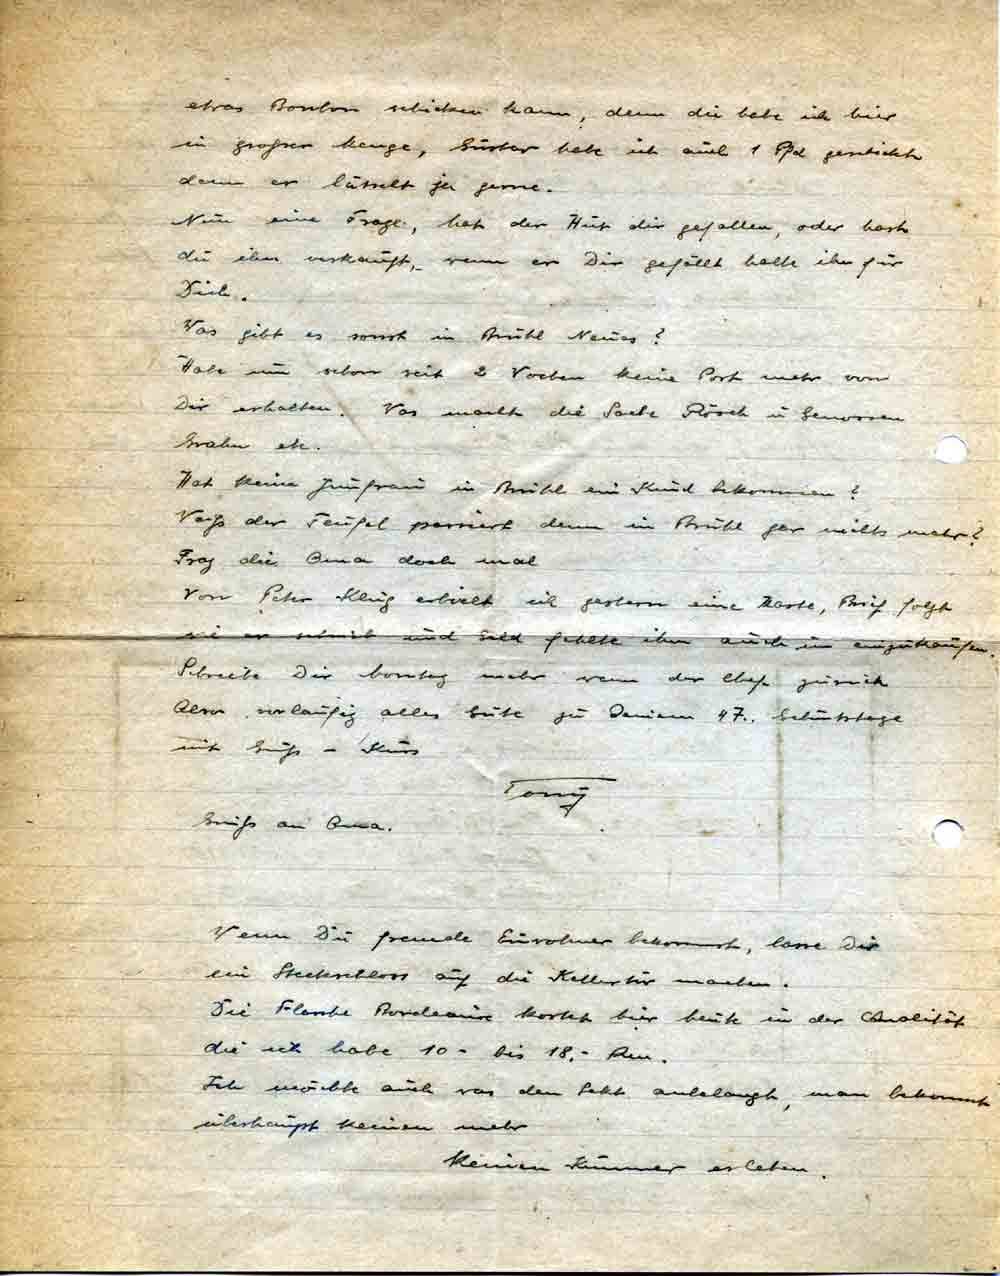 etwas Bonbon schicken kann, denn die habe ich hier
in grosser Menge, Günter habe ich auch 1 Pfd geschickt
denn er lätselt ja gerne.
Nun eine Frage, hat der Hut dir gefallen, oder hast
du ihn verkauft, wenn er Dir gefällt halte ihn für
Dich.
Was gibt es sonst in Brühl Neues?
Habe nun schon seit 2 Wochen keine Post mehr von
Dir erhalten. Was macht die Sache Rösch u Genossen
Grahn etc.
Hat keine Jungfrau in Brühl ein Kind bekommen?
Weiß der Teufel passiert denn in Brühl gar nichts mehr?
Frag die Oma doch mal
Von Peter Klug erhielt ich gestern eine Karte, Brief folgt
wie er schrieb und Geld fehlte ihm auch um einzukaufen.
Schreibe Dir Sonntag mehr wenn der Chef zurück
Also vorläufig alles Gute zu Deinem 47. Geburtstage
mit Gruß - Kuss
Tony
Gruß an Oma.
Wenn Du fremde Einwohner bekommst, lasse Dir
ein Steckschloss auf die Kellertür machen.
Die Flasche Bordeaux kostet hier heute in der Qualität
die ich habe 10 - bis 18,- Rm.
Ich möchte auch was den Sekt anbelangt, man bekommt
überhaupt keinen mehr
keinen Kummer erleben.